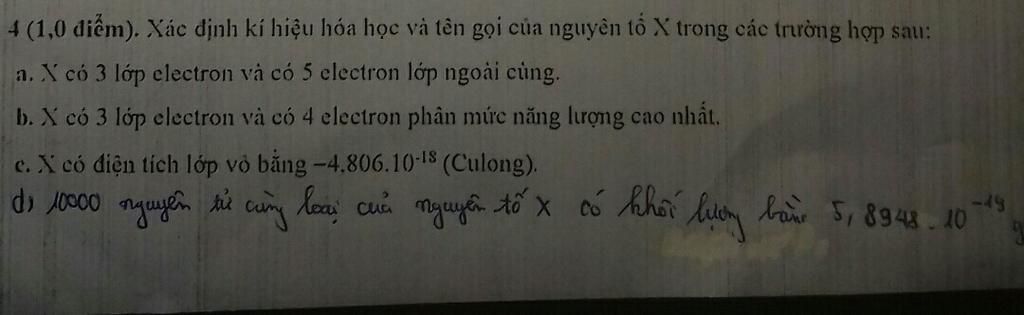 4 (1,0 điểm). Xác định kí hiệu hóa học và tên gọi của nguyên tố X trong các trường hợp sau:
a. X có 3 lớp electron và có 5 electron lớp ngoài cùng.
b. X có 3 lớp electron và có 4 electron phân mức năng lượng cao nhất.
c. X có điện tích lớp vỏ bằng −4,806.10⁻¹⁸ (Culong).
d) 10000 nguyên tử cùng loại của nguyên tố X có khối lượng bằng 5,8948.10⁻¹⁹ g